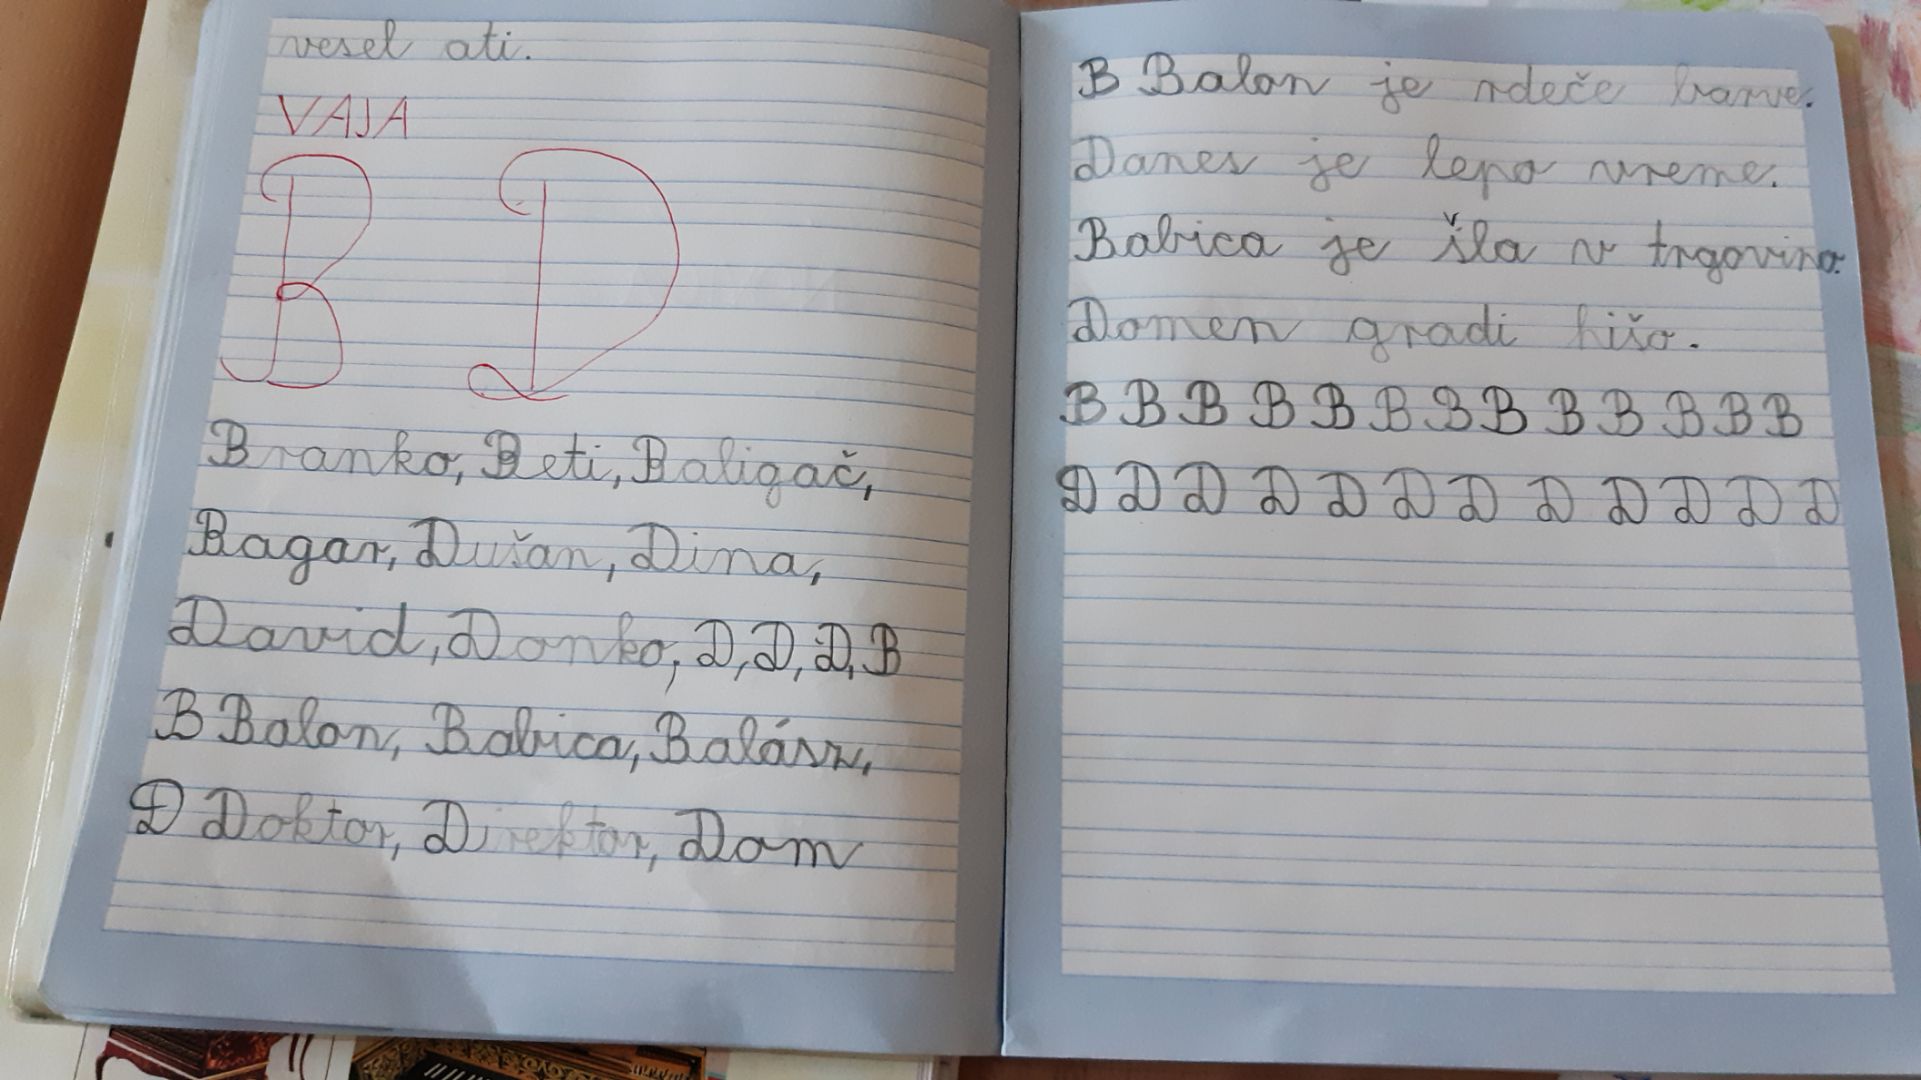 vesel ati.
VAJA
B D
Branko, Beti, Baligač,
Bagar, Dušan, Dina,
David, Donko, D, D, D, B
B Balon, Babica, Balázs,
D Doktor, Direktor, Dom
B Balon je rdeče barve.
Danes je lepo vreme.
Babica je šla v trgovino.
Domen gradi hišo.
B B B B B B B B B B B B B
D D D D D D D D D D D D